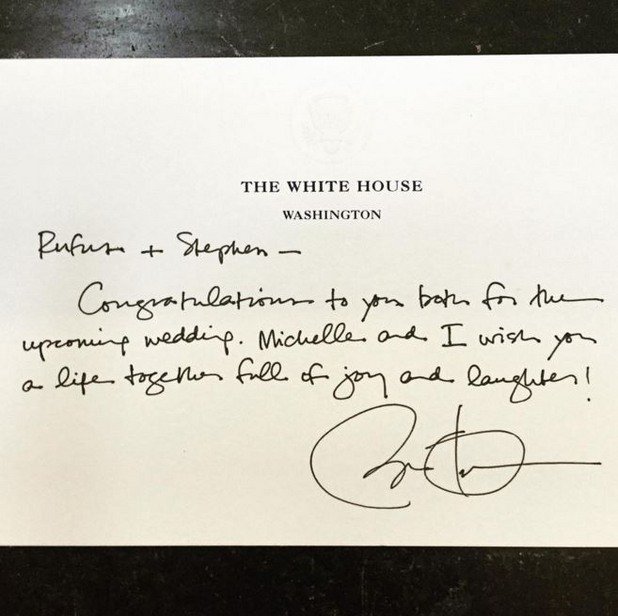 THE WHITE HOUSE
WASHINGTON
Rufus + Stephen —
Congratulations to you both for the
upcoming wedding. Michelle and I wish you
a life together full of joy and laughter!